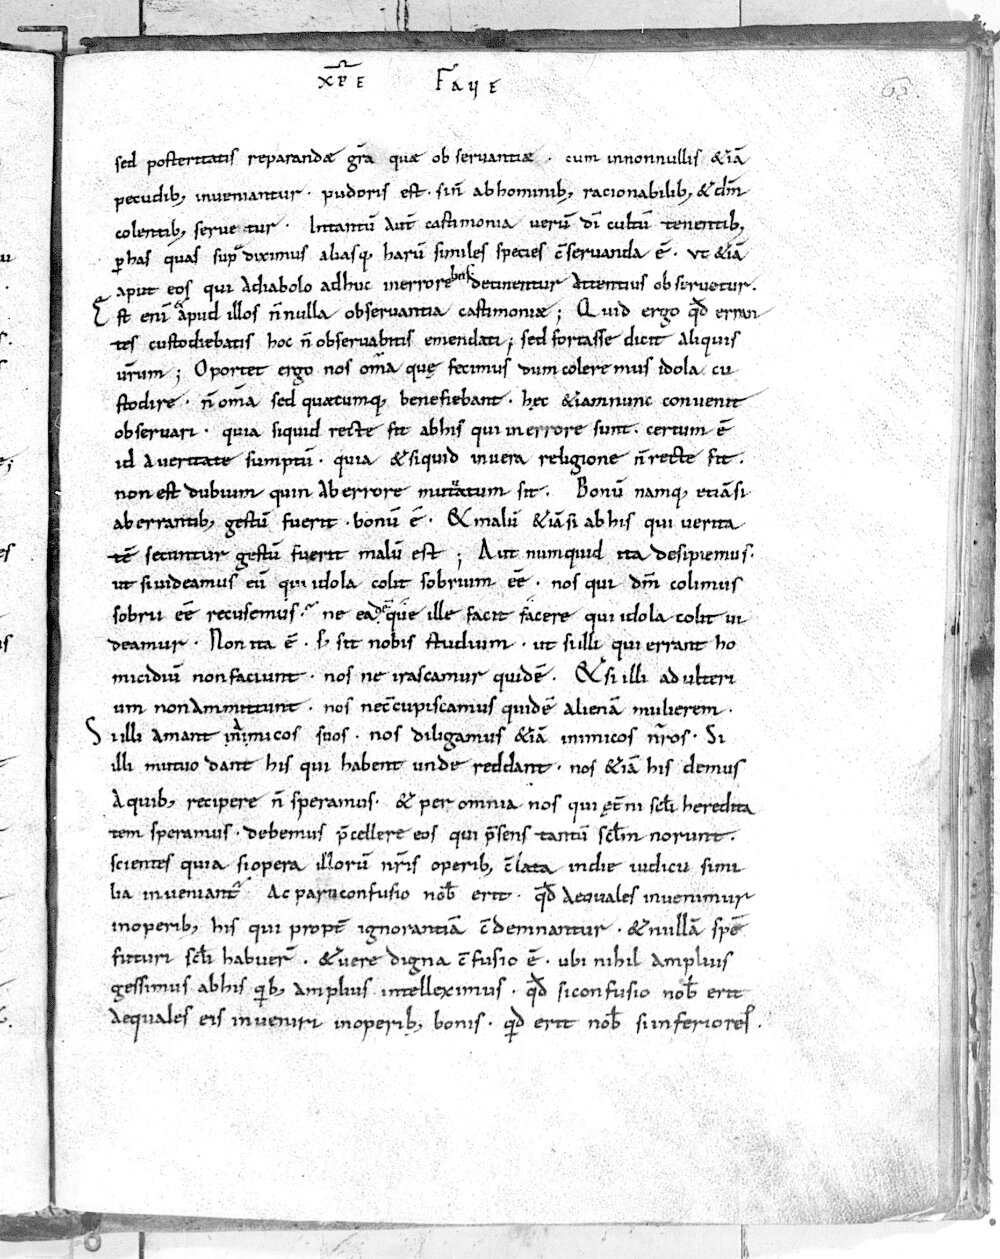 xp̄e Faue
65.
sed posteritatis reparandæ gr̄a quæ observantia · cum innonnullis &iā
pecudib; inveniantur · pudoris est · sin̄ abhominib; racionabilib; & dm̄
colentib; servetur · Intantū aut̄ castimonia verū dī cultū tenentib;
ꝑ has quas sup̄ diximus aliasq; harū similes species c̄servanda ē · ut &iā
aput eos qui adiabolo adhuc inerrore detinentur attentius observetur.
Est enī & apud illos n̄nulla observantia castimoniæ ; Quid ergo qd̄ erran
tes custodiebatis hoc n̄ observabitis emendati ; sed fortasse dicit aliquis
vr̄um ; Oportet ergo nos om̄a quę fecimus dum coleremus idola cu
stodire · n̄ om̄a sed quæcumq; benefiebant · hęc &iamnunc convenit
observari · quia siquid recte fit abhis qui inerrore sunt · certum ē
id averitate sumptū · quia &siquid invera religione n̄ recte fit ·
non est dubium quin aberrore mutuatum sit · Bonū namq; etiāsi
aberrantib; gestū fuerit · bonū ē · & malū &iāsi abhis qui verita
tē secuntur gestū fuerit malū est ; Aut numquid ita desipiemus ·
ut sivideamus eū qui idola colit sobrium ēe · nos qui dm̄ colimus
sobrii ēe recusemus · ne eadē que ille facit facere qui idola colit vi
deamur · Non ita ē · s; sit nobis studium · ut si illi qui errant ho
micidiū non faciunt · nos ne irascamur quidē · & si illi adulteri
um non ammittunt · nos nec c̄cupiscamus quidē alienā mulierem ·
Si illi amant inimicos suos · nos diligamus &iā inimicos nr̄os · Si
illi mutuo dant his qui habent unde reddant · nos &iā his demus
aquib; recipere n̄ speramus · & per omnia nos qui ęt̄ni scl̄i heredita
tem speramus · debemus p̄cellere eos qui p̄sens tantū scl̄m norunt ·
scientes quia si opera illorū nr̄is operib; c̄lata indie iudicii simi
lia inveniant̄ Ac par confusio nob̄ erit · qd̄ aequales invenimur
inoperib; his qui propt̄ ignorantiā c̄demnantur · & nullā spē
futuri scl̄i habuer̄ · & vere digna c̄fusio ē · ubi nihil amplius
gessimus abhis qib; amplius intelleximus · qd̄ si confusio nob̄ erit
aequales eis inveniri inoperib; bonis · qd̄ erit nob̄ si inferiores ·